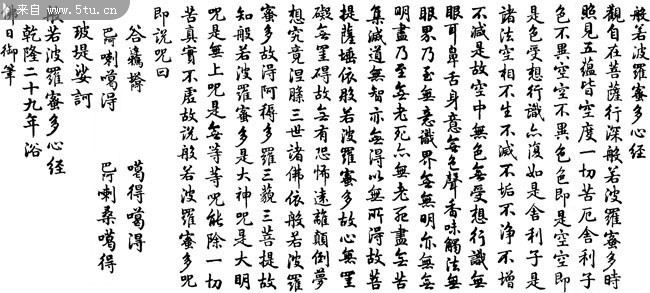 般若波羅蜜多心經
觀自在菩薩行深般若波羅蜜多時
照見五蘊皆空度一切苦厄舍利子
色不異空空不異色色即是空空即
是色受想行識亦復如是舍利子是
諸法空相不生不滅不垢不淨不增
不減是故空中無色無受想行識無
眼耳鼻舌身意無色聲香味觸法無
眼界乃至無意識界無無明亦無無
明盡乃至無老死亦無老死盡無苦
集滅道無智亦無得以無所得故菩
提薩埵依般若波羅蜜多故心無罣
礙無罣礙故無有恐怖遠離顛倒夢
想究竟涅槃三世諸佛依般若波羅
蜜多故得阿耨多羅三藐三菩提故
知般若波羅蜜多是大神咒是大明
咒是無上咒是無等等咒能除一切
苦真實不虛故說般若波羅蜜多咒
即說咒曰
答 噶得噶得
喇噶得 喇桑噶得
玻提娑訶
般若波羅蜜多心經
乾隆二十九年浴
佛日御筆